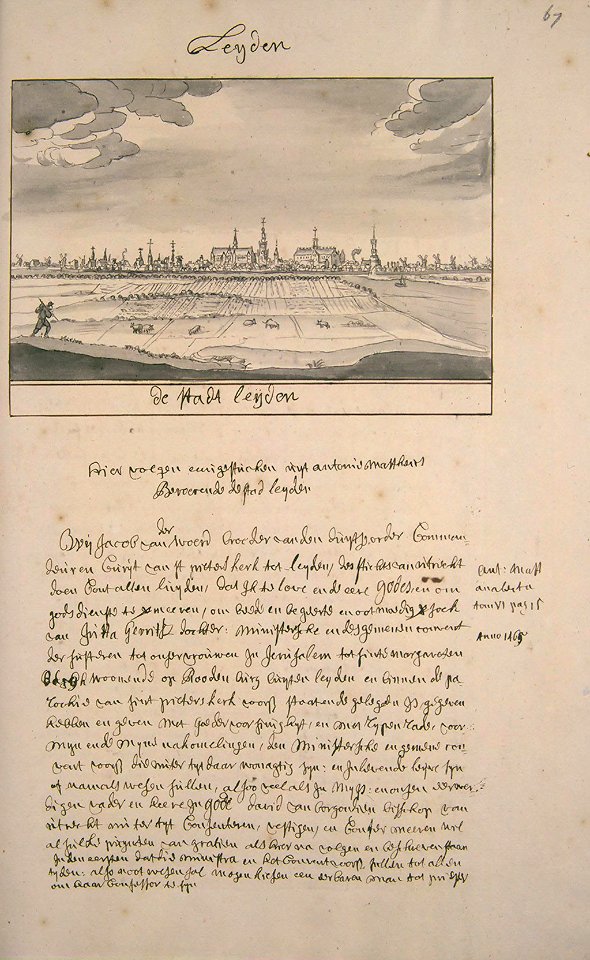 67
Leyden
de stadt leyden
Hier volgen eenige stucken uyt antonie Mattheus
Beroerende de stad leyden
der
Wij Jacob van Woerd broeder van den duytsz order Comman
deur en Curijt van st pieters kerk tot leyden, des stichts van uitrecht
doen Cont allen luyden, dat Ik te love ende eere Godes, en om
gods dienste te meeren, om bede en begeerte en ootmoedig
van Jutta Gerrits dochter: Ministersche en des gemenen convent
der susteren tot onser vrouwen in Jerusalem tot sinte margareten
woonende op Rooden burg buyten leyden en binnen de pa
rochie van sint pieters kerk voorsz staat ende gelegen Is, gegeven
hebben en geven met
mijn ende myne nakomelingen, den Ministersche en gemene con
vent voorsz die nu ter tyt daar wonagtig zyn: en
of namaels wesen sullen, alsoo veel als In myn: en onsen eerwer
digen vader en heere In Gode david van borgondien bisschop van
uitrecht nu ter tyt Consenteren, vestigen, en Confirmeeren wil
al sulke punten van gratien als hier na volgen en beschreven staan
Inden eersten dat die ministra en het Convent voorsz sullen tot allen
tyden: also noot wesen sal mogen kiesen een eerbaren man tot priester
om haar Confessor te syn
Ant: Matt
analecta
tom VI pag 15
Anno 1465